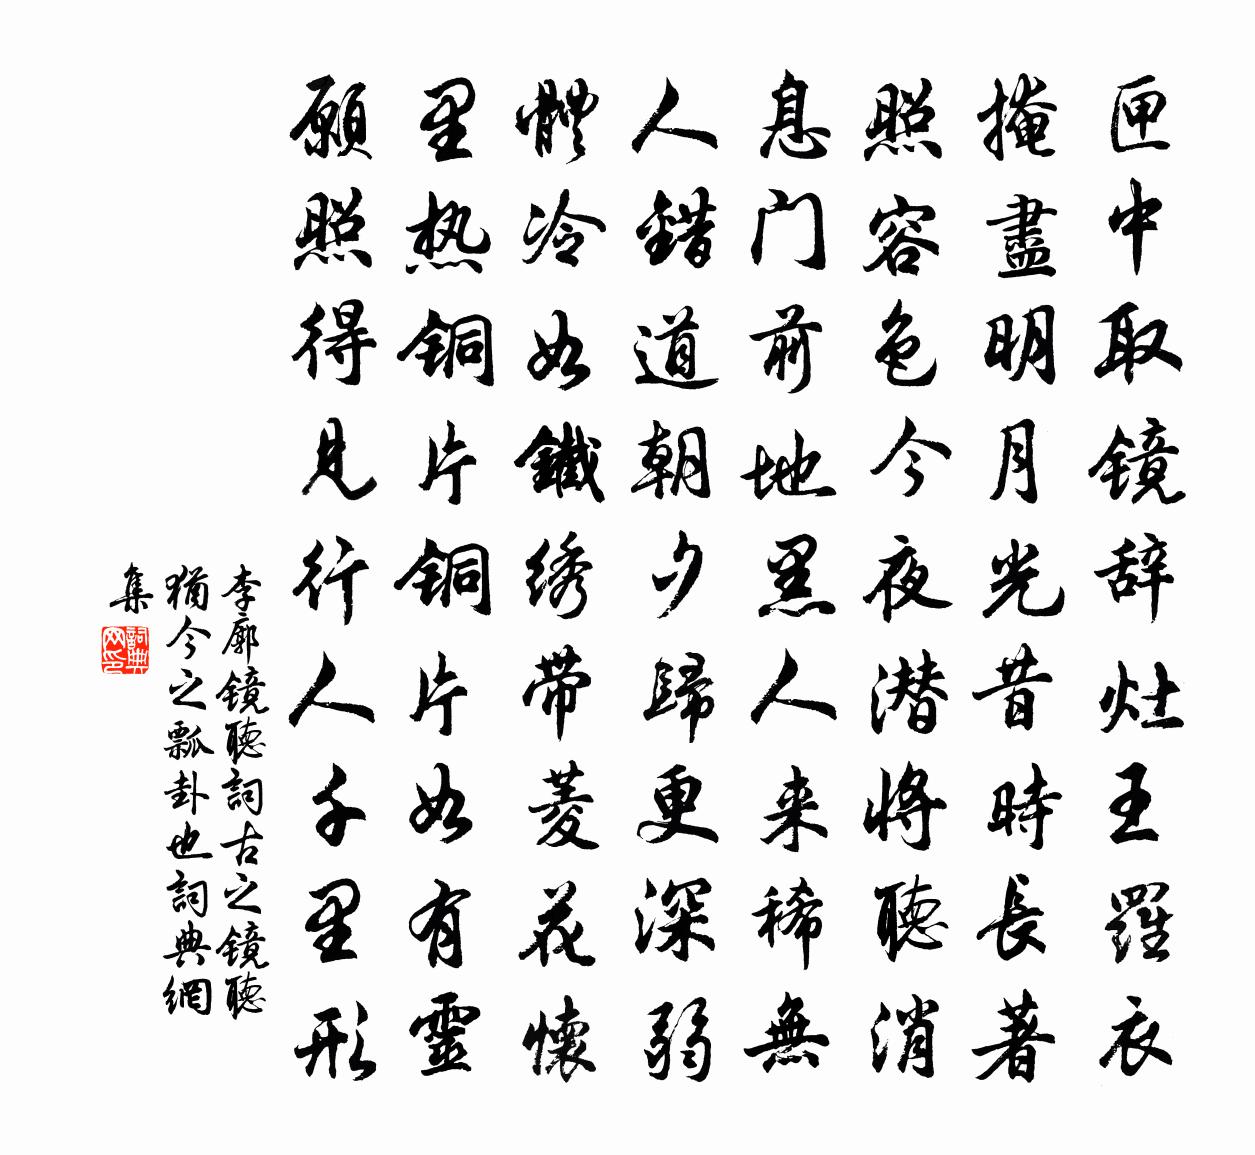 匣中取镜辞灶王羅衣
掩盡明月光昔時長著
照容色今夜潜将聽消
息门前地黑人来稀無
人錯道朝夕歸更深弱
體冷如鐵绣带菱花懷
里热铜片铜片如有靈
願照得見行人千里形
李廓镜聽詞古之镜聽
猶今之瓢卦也詞典網
集
詞典网印